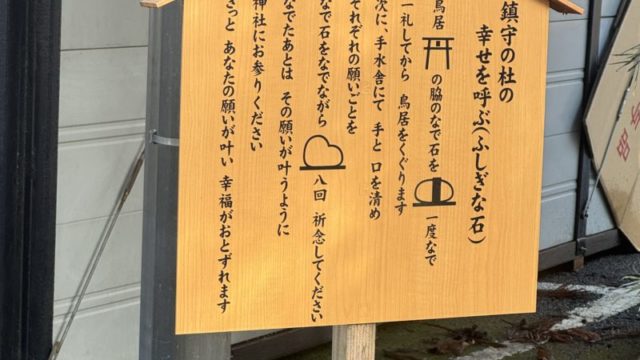 鎮守の杜の
幸せを呼ぶ(ふしぎな石)
鳥居 の脇のなで石を 一度なで
一礼してから 鳥居をくぐります
次に、手水舎にて 手と口を清め
それぞれの願いごとを
なで石をなでながら 八回 祈念してください
なでたあとは その願いが叶うように
神社にお参りください
きっと あなたの願いが叶い 幸福がおとずれます